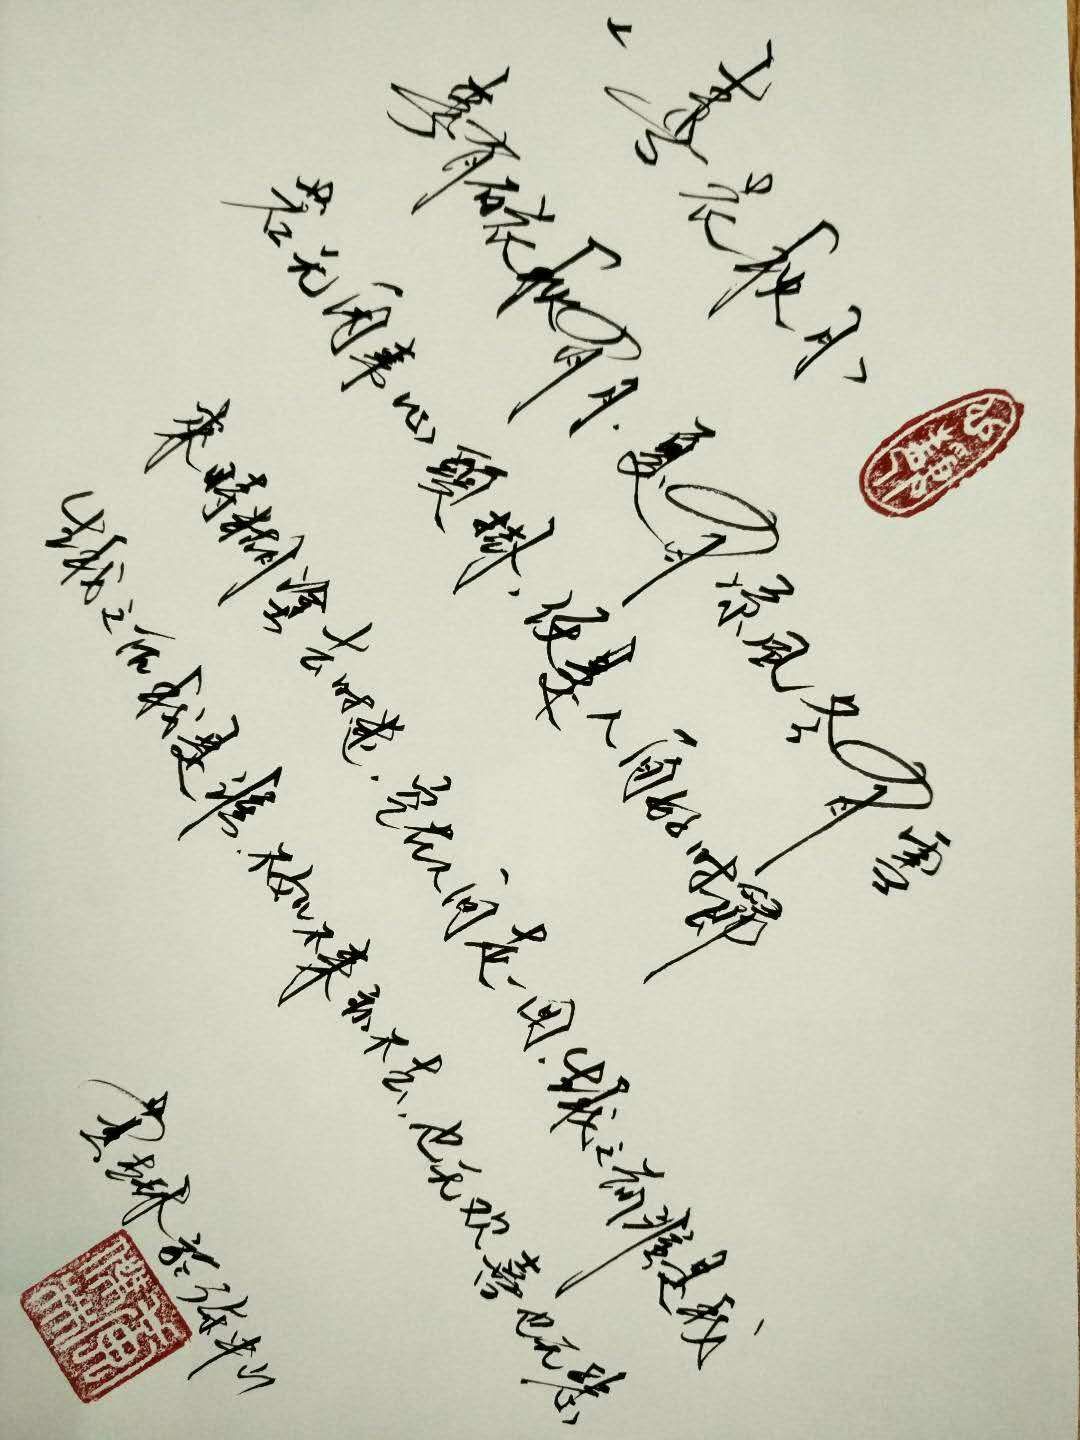 《春花秋月》
春有百花秋有月.夏有凉风冬有雪
若无闲事心頭掛.便是人间好时節
来時糊塗去时迷.空在人间走一回.生我之前誰是我
生我之后我是誰.不如不来亦不去.也无欢喜也无悲